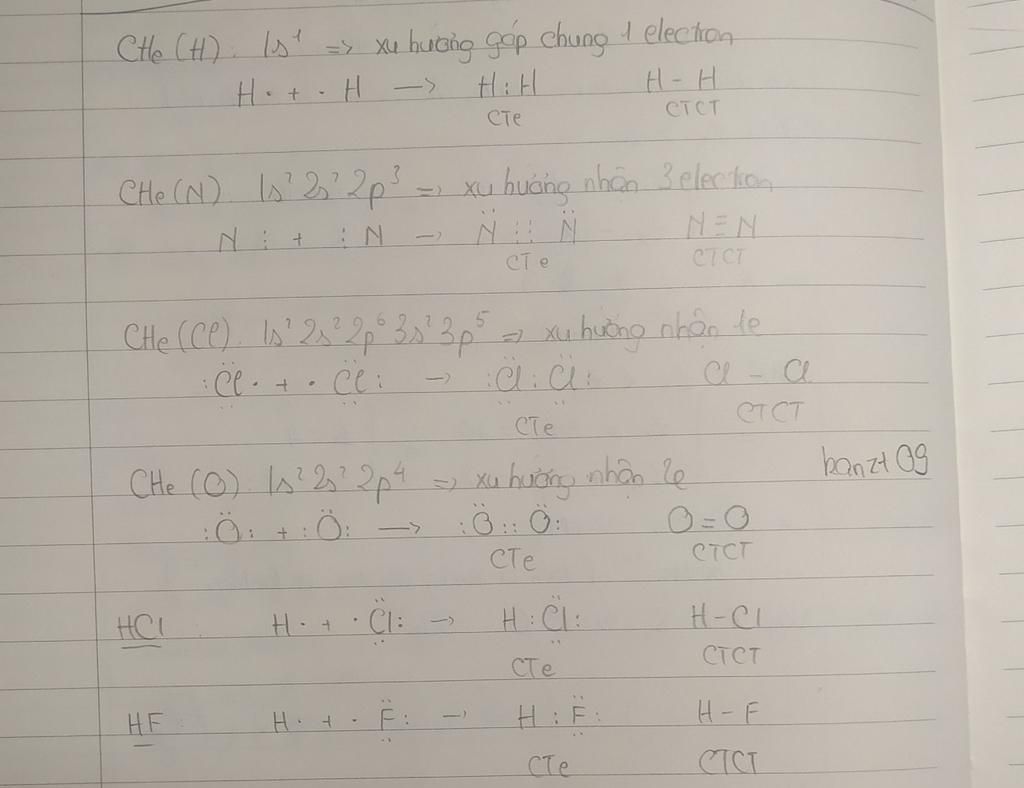 CHe (H). 1s¹ => xu hướng góp chung 1 electron
H· + ·H → H:H H – H
CTe CTCT
CHe (N). 1s² 2s² 2p³ => xu hướng nhận 3 electron
N⋮ + ⋮N → N̈ ⋮⋮ N̈ N ≡ N
CTe CTCT
CHe (Cl). 1s² 2s² 2p⁶ 3s² 3p⁵ => xu hướng nhận 1e
:C̤̈l· + ·C̤̈l: → :C̤̈l:C̤̈l: Cl – Cl
CTe CTCT
CHe (O) 1s² 2s² 2p⁴ => xu hướng nhận 2e banzt 09
:Ö: + :Ö: → :Ö::Ö: O = O
CTe CTCT
HCl H· + ·C̤̈l: → H:C̤̈l: H – Cl
CTe CTCT
HF H· + ·F̤̈: → H:F̤̈: H – F
CTe CTCT